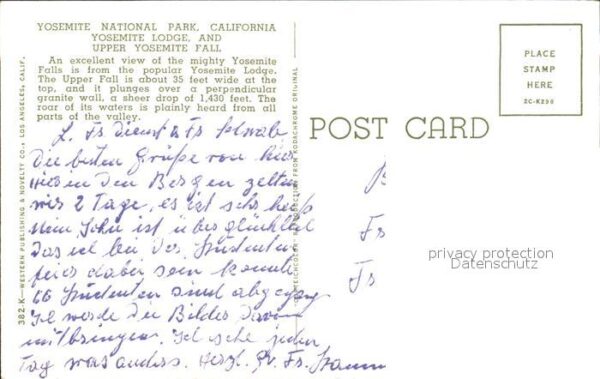 YOSEMITE NATIONAL PARK, CALIFORNIA
YOSEMITE LODGE, AND
UPPER YOSEMITE FALL
An excellent view of the mighty Yosemite
Falls is from the popular Yosemite Lodge.
The Upper Fall is about 35 feet wide at the
top, and it plunges over a perpendicular
granite wall, a sheer drop of 1,430 feet. The
roar of its waters is plainly heard from all
parts of the valley.
L. Fr Dienst & Fr Schwab
Die besten Grüße von hier
Hier in den Bergen zelten
wir 2 Tage, es ist sehr heiß
Mein Sohn ist überglücklich
Das ich bei der Studenten
feier dabei sein konnte
66 Studenten sind abgegang
Ich werde die Bilder davon
mitbringen. Ich sehe jeden
Tag was anders. Herzl. Gr. Fr.
382 K—WESTERN PUBLISHING & NOVELTY CO., LOS ANGELES, CALIF.
FROM KODACHROME ORIGINAL
POST CARD
PLACE
STAMP
HERE
2C-K290
Fr
Fr
privacy protection
Datenschutz